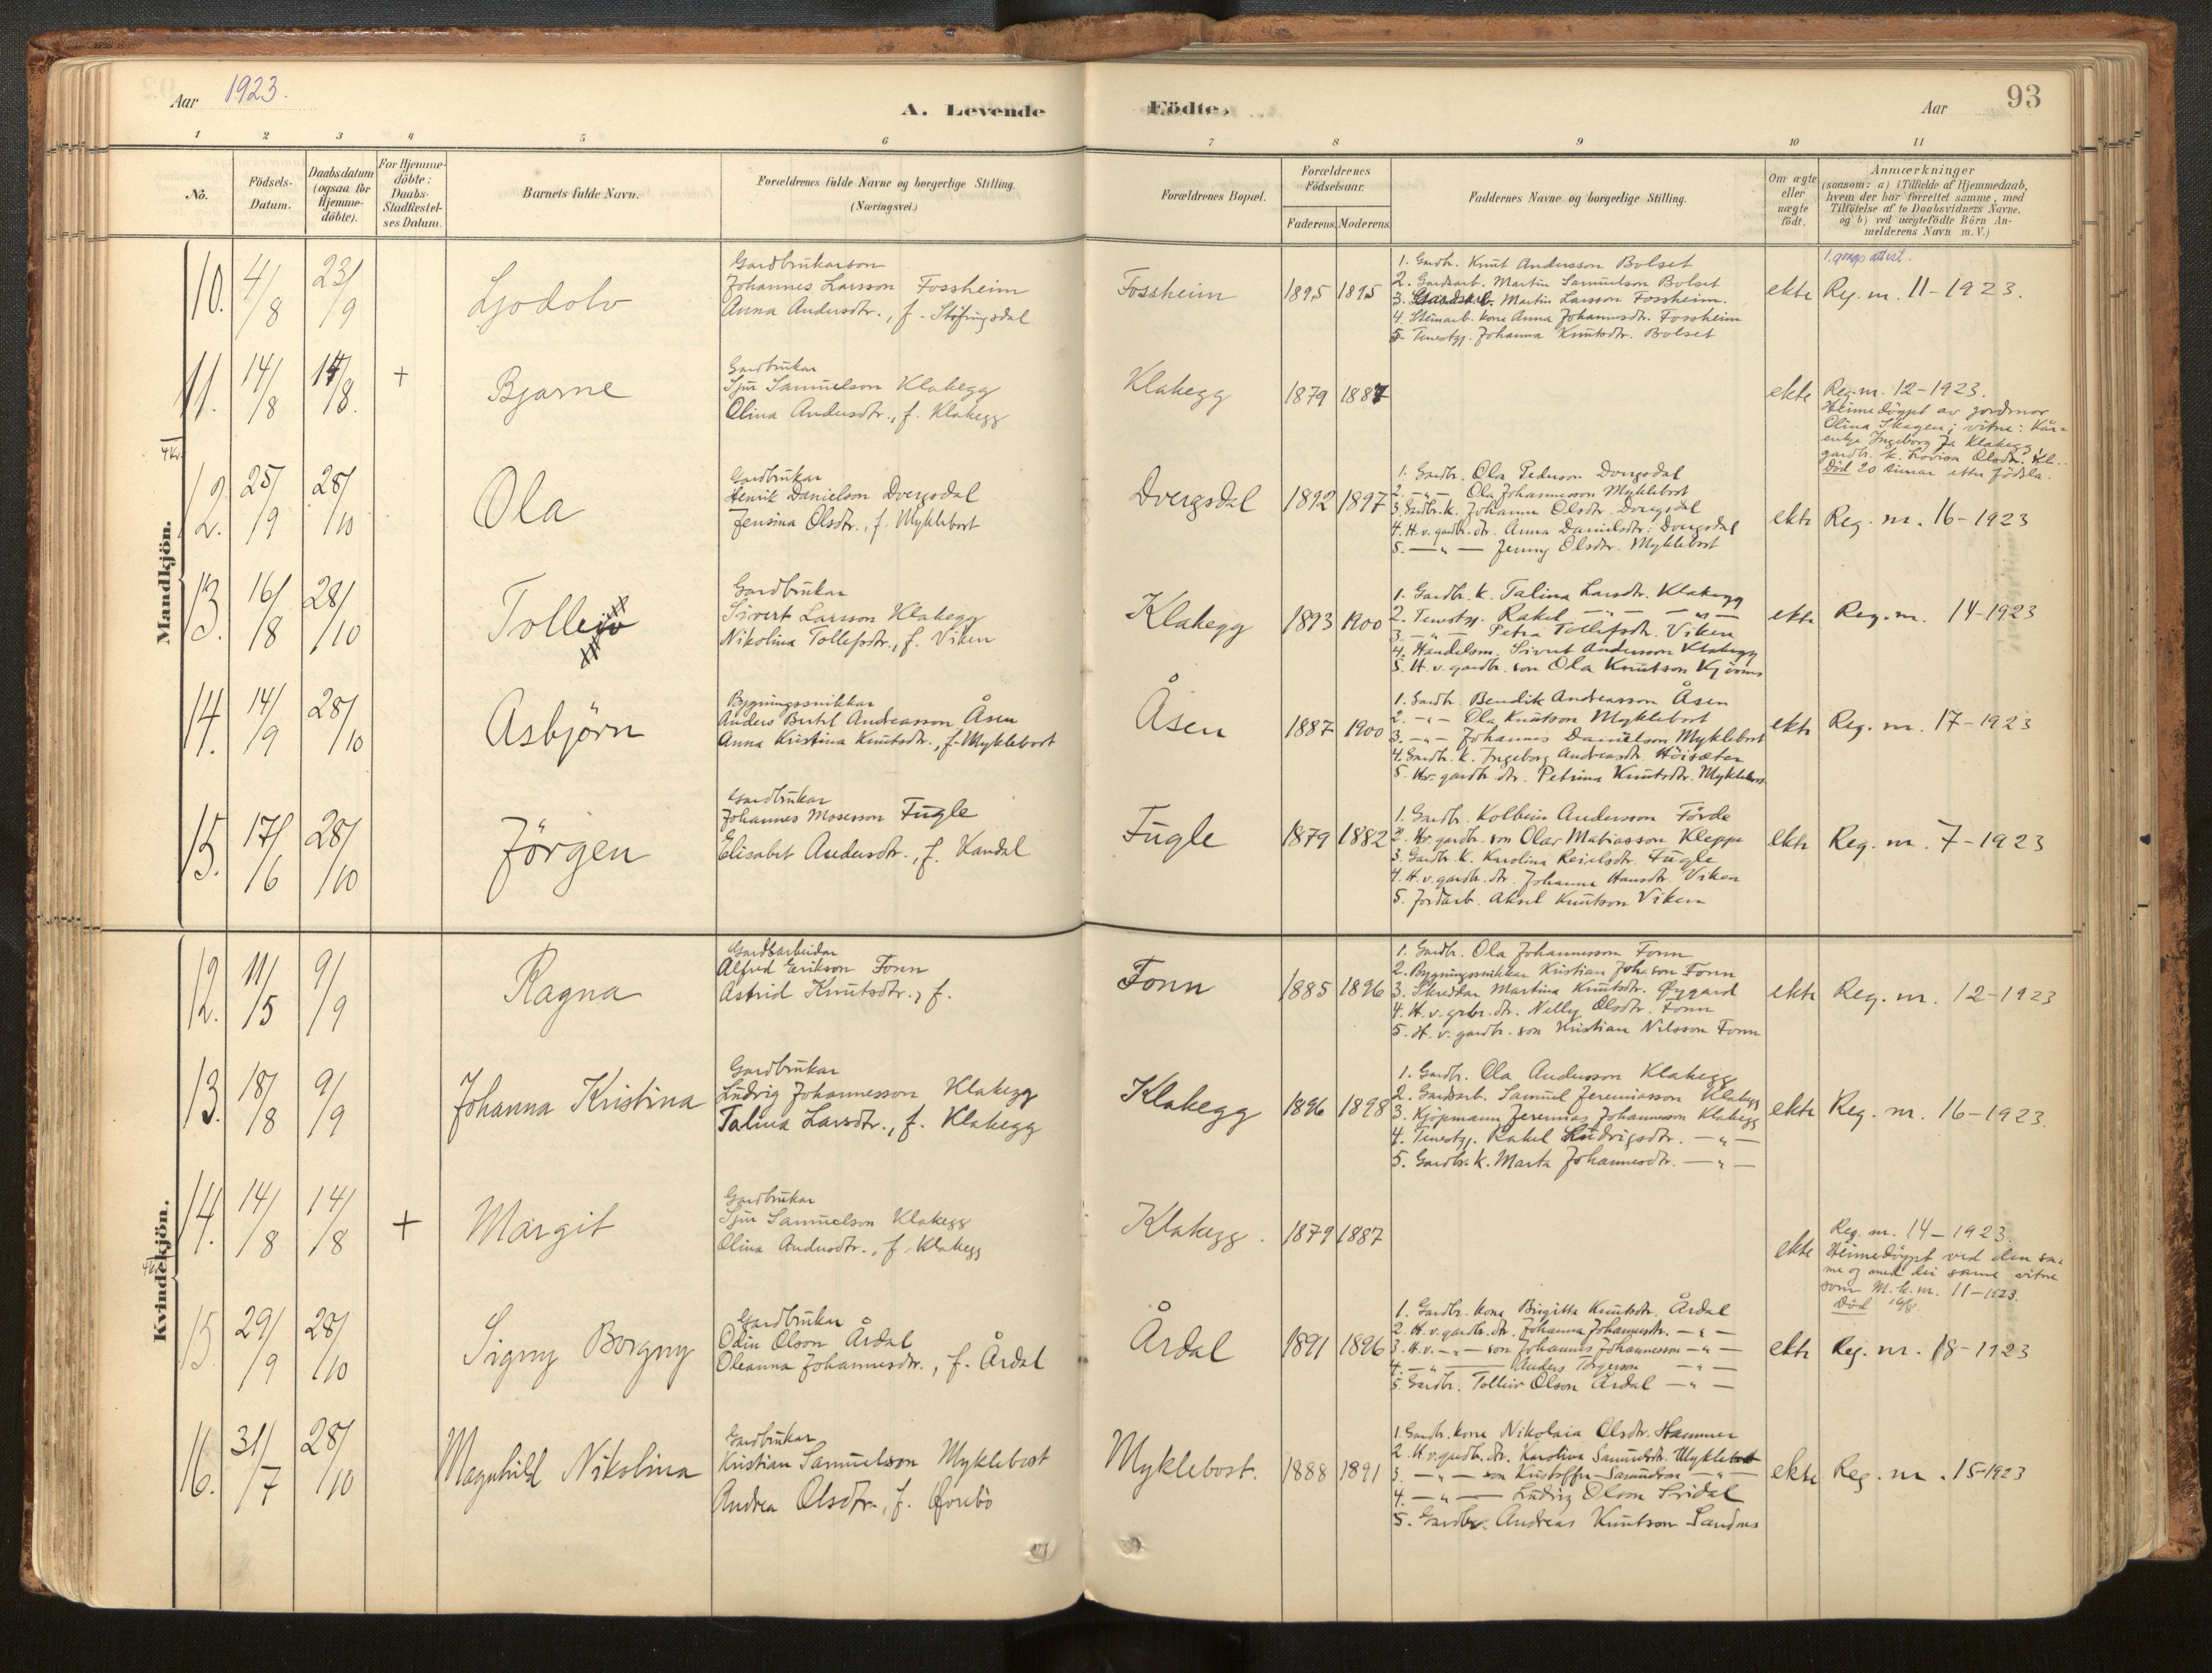 Aar 1923.
A. Levende
Födte.
Aar
93
1 2 3 4 5 6 7 8 9 10 11
No.
Födsels-
Datum.
Daabsdatum
(ogsaa for
Hjemme-
döbte).
For Hjemme-
döbte:
Daabs-
Stadfæstel-
ses Datum.
Barnets fulde Navn.
Forældrenes fulde Navne og borgerlige Stilling.
(Næringsvei.)
Forældrenes Bopæl.
Forældrenes
Födselsaar.
Faderens. Moderens.
Faddernes Navne og borgerlige Stilling.
Om ægte
eller
uægte
födt.
Anmærkninger
(saasom: a) i Tilfælde af Hjemmedaab,
hvem der har forrettet samme, med
Tilföielse af to Daabsvidners Navne,
og b) ved uægtefödte Börn An-
melderens Navn m. V.)
Mandkjön.
10. 4/8 23/9
Ljodolv
Gardbrukarson
Johannes Larsson Fossheim
Anna Andersdtr., f. Støfringsdal
Fossheim
1895 1895
1. Gardbr. Knut Andersson Bolset
2. Gardsarb. Martin Samuelson Bolset
3. Gardsarb. Martin Larsson Fossheim.
4. Steinarb. kona Anna Johannesdtr. Fossheim
5. Tenestgj. Johanna Knutsdtr. Bolset
ekte
1. gongs attest.
Reg. nr. 11-1923.
11. 14/8 14/8. +
Bjarne
Gardbrukar
Sjur Samuelson Klakegg
Olina Andersdtr., f. Klakegg
Klakegg
1879 1887
ekte
Reg. nr. 12-1923.
Heimedöypt av jordmor
Olina Skagen; vitne: Kår-
enkje Ingeborg J. Klakegg,
gardbr. k. Lovisa Olsdtr. Kl..
Död 20 timar etter födsla.
4 Kv.
12. 25/9 28/10
Ola
Gardbrukar
Henrik Danielson Dvergsdal
Jensina Olsdtr., f. Myklebost
Dvergsdal
1892 1897
1. Gardbr. Ola Pederson Dvergsdal
2. —"— Ola Johannesson Myklebost
3. Gardbr. k. Johanna Olsdtr. Dvergsdal
4. H. v. gardbr. dtr. Anna Danielsdtr. Dvergsdal
5. —"— Jenny Olsdtr. Myklebost
ekte
Reg. nr. 16-1923
13. 16/8 28/10
Tolleiv
Gardbrukar
Sivert Larsson Klakegg
Nikolina Tollefsdtr., f. Viken
Klakegg
1893 1900
1. Gardbr. k. Talina Larsdtr. Klakegg
2. Tenestgj. Rakel —"— —"—
3. —"— Petra Tollefsdtr. Viken
4. Handelsm. Sivert Andersson Klakegg
5. H. v. gardbr. son Ola Knutson Kjösnes
ekte
Reg. nr. 14-1923
14. 14/9 28/10
Asbjörn
Bygningssnikkar
Anders Bertel Andreasson Åsen
Anna Kristina Knutsdtr., f. Myklebost
Åsen
1887 1900
1. Gardbr. Bendik Andreasson Åsen
2. —"— Ola Knutson Myklebost
3. —"— Johannes Danielson Myklebost
4. Gardbr. k. Ingeborg Andreasdtr. Höisæter
5. Hv. gardbr. dtr. Petrina Knutsdtr. Myklebost
ekte
Reg. nr. 17-1923
15. 17/6 28/10
Jörgen
Gardbrukar
Johannes Mosesson Fugle
Elisabet Andersdtr., f. Kandal
Fugle
1879 1882
1. Gardbr. Kolbein Andersson Förde
2. Hv. gardbr. son Olav Matiasson Kleppe
3. Gardbr. K. Karolina Reielsdtr. Fugle
4. H. v. gardbr. dtr. Johanna Hansdtr. Viken
5. Jordarb. Aksel Knutson Viken
ekte
Reg. nr. 7-1923
Kvindekjön.
12. 11/5 9/9
Ragna
Gardsarbeidar
Alfred Eirikson Fonn
Astrid Knutsdtr., f.
Fonn
1885 1896
1. Gardbr. Ola Johannesson Fonn
2. Bygningssnikkar Kristian Joh.son Fonn
3. Skreddar Martina Knutsdtr. Øygard
4. H. v. grbr. dtr. Nelly Olsdtr. Fonn
5. H. v. gardbr. son Kristian Nilsson Fonn
ekte
Reg. nr. 12-1923
13. 18/8 9/9
Johanna Kristina
Gardbrukar
Ludvig Johannesson Klakegg
Talina Larsdtr., f. Klakegg
Klakegg
1896 1898
1. Gardbr. Ola Andersson Klakegg
2. Gardsarb. Samuel Jeremiasson Klakegg
3. Kjöpmann Jeremias Johannesson Klakegg
4. Tenestgj. Rakel Ludvigsdtr. —"—
5. Gardbr. k. Marta Johannesdtr. —"—
ekte
Reg. nr. 16-1923.
14. 14/8 14/8 +
Margit
Gardbrukar
Sjur Samuelson Klakegg
Olina Andersdtr., f. Klakegg
Klakegg.
1879 1887
ekte
Reg. nr. 14-1923.
Heimedöypt ved den sa-
me og med dei same vitne
som M. k. nr. 11-1923.
Död 16/8.
15. 29/9 28/10
Signy Borgny
Gardbrukar
Odin Olson Årdal
Oleanna Johannesdtr., f. Årdal
Årdal
1891 1896
1. Gardbr. kona Birgitta Knutsdtr. Årdal
2. H. v. gardbr. dtr. Johanna Johannesdtr. —"—
3. H. v. —"— son Johannes Johannesson —"—
4. —"— Anders Torgerson —"—
5. Gardbr. Tolleiv Olson Årdal —"—
ekte
Reg. nr. 18-1923
16. 31/7 28/10
Magnhild Nikolina
Gardbrukar
Kristian Samuelson Myklebost
Andrea Olsdtr., f. Øvrebö
Myklebost.
1888 1891
1. Gardbr. kona Nikolaia Olsdtr. Hammer
2. H. v. gardbr. dtr. Karolina Samuelsdtr. Myklebost
3. —"— son Kristoffer Samuelson —"—
4. —"— Ludvig Olson Fridal
5. Gardbr. Andreas Knutson Sandnes
ekte
Reg. nr. 15-1923